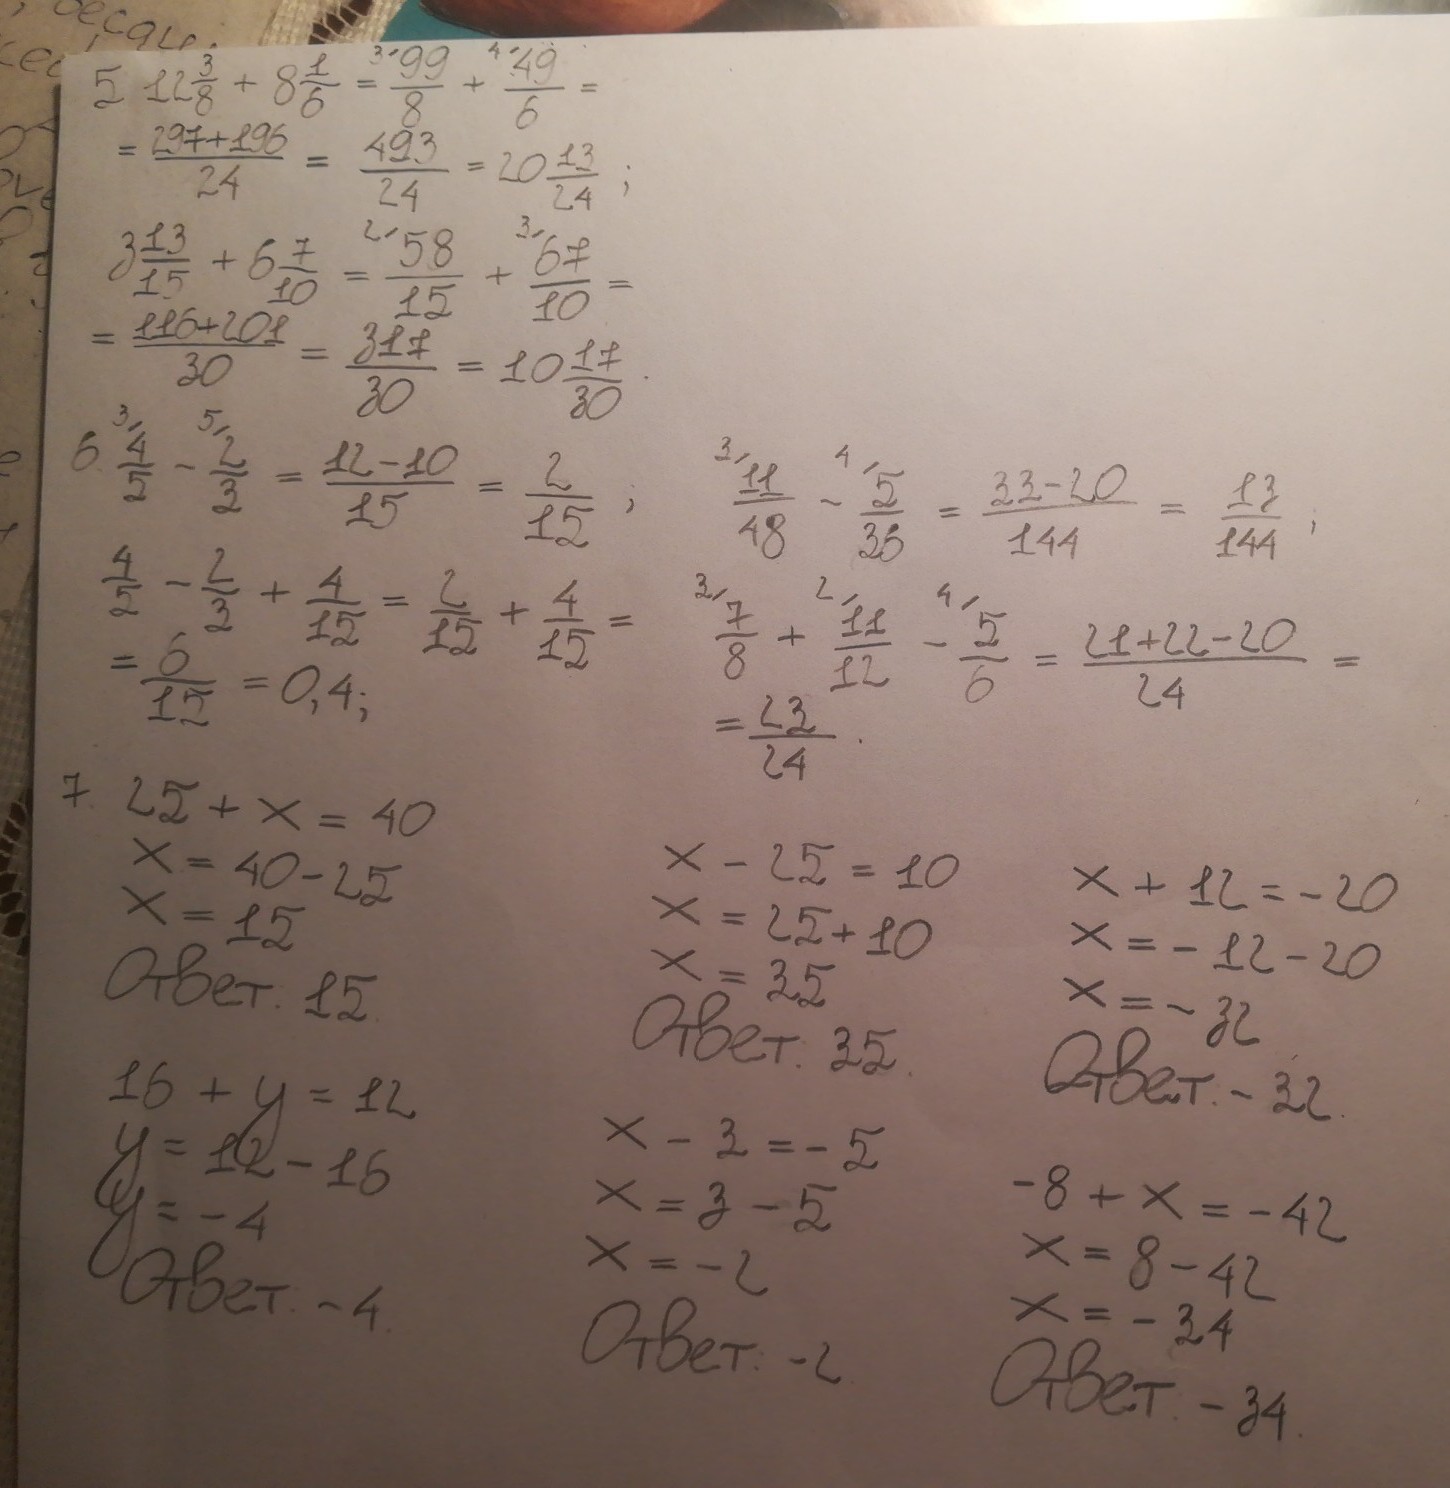 5 12 3/8 + 8 1/6 = 3/ 99/8 + 4/ 49/6 =
= (297+196)/24 = 493/24 = 20 13/24 ;
3 13/15 + 6 7/10 = 2/ 58/15 + 3/ 67/10 =
= (116+201)/30 = 317/30 = 10 17/30 .
6. 3/ 4/5 - 5/ 2/3 = (12-10)/15 = 2/15 ;
4/5 - 2/3 + 4/15 = 2/15 + 4/15 =
= 6/15 = 0,4;
3/ 11/48 - 4/ 5/36 = (33-20)/144 = 13/144 ;
3/ 7/8 + 2/ 11/12 - 4/ 5/6 = (21+22-20)/24 =
= 23/24 .
7. 25 + x = 40
x = 40-25
x = 15
Ответ: 15.
x - 25 = 10
x = 25+10
x = 35
Ответ: 35.
x + 12 = -20
x = -12-20
x = -32
Ответ: -32.
16 + y = 12
y = 12-16
y = -4
Ответ: -4.
x - 3 = -5
x = 3 - 5
x = -2
Ответ: -2
-8 + x = -42
x = 8-42
x = -34
Ответ: -34.